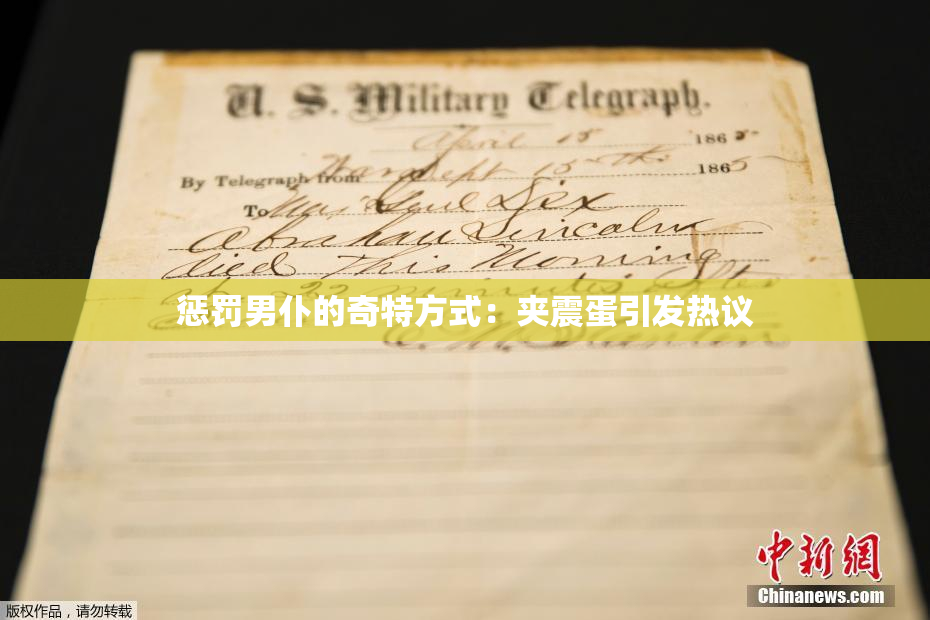 U. S. Military Telegraph.
April 15 1865
By Telegraph from War Dept 15th 1865
To Maj Genl Dix
Abraham Lincoln
died This Morning
at 22 minutes after
惩罚男仆的奇特方式：夹震蛋引发热议
E. M. Stanton
中新网
Chinanews.com
版权作品，请勿转载